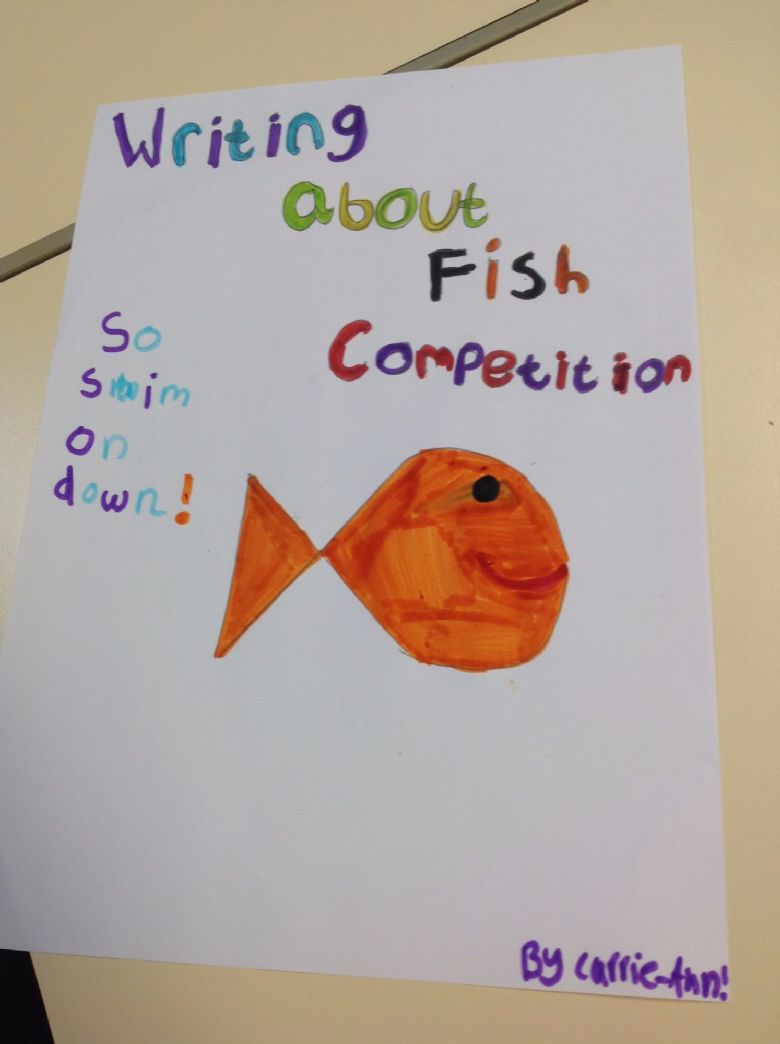 Writing
about
Fish
Competition
So
swim
on
down!
By Carrie-Ann!